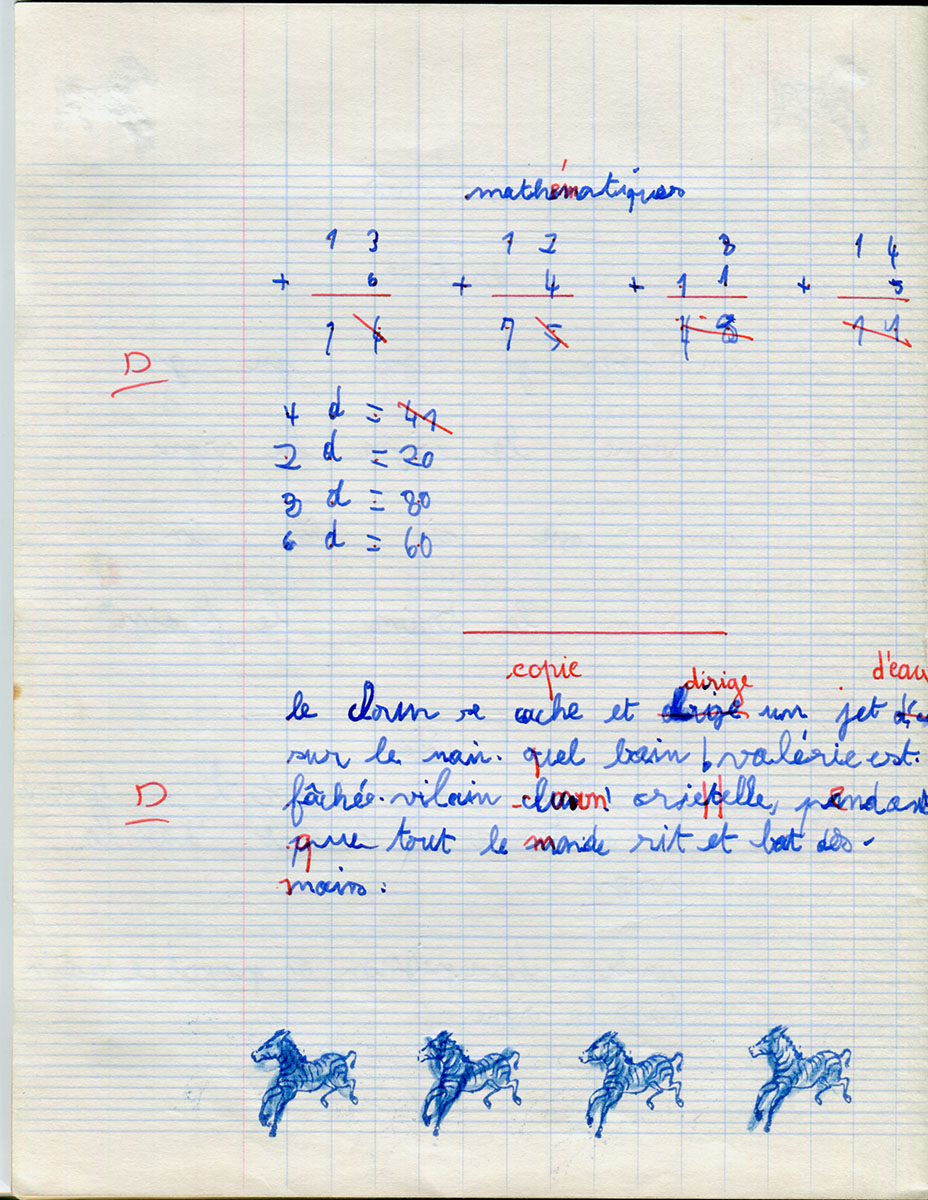 mathématiques
1 3   1 2   8   1 4
+ 6   + 4   + 1 1   + 5
1   7 5   1 8   1 1
D
4 d = 41
2 d = 20
3 d = 80
6 d = 60
copie
dirige d'eau
le cloun se cache et un jet
sur le nain. quel bain ! valérie est
fâchée. vilain cria-t-elle, pendant
D
que tout le monde rit et bat des
mains.